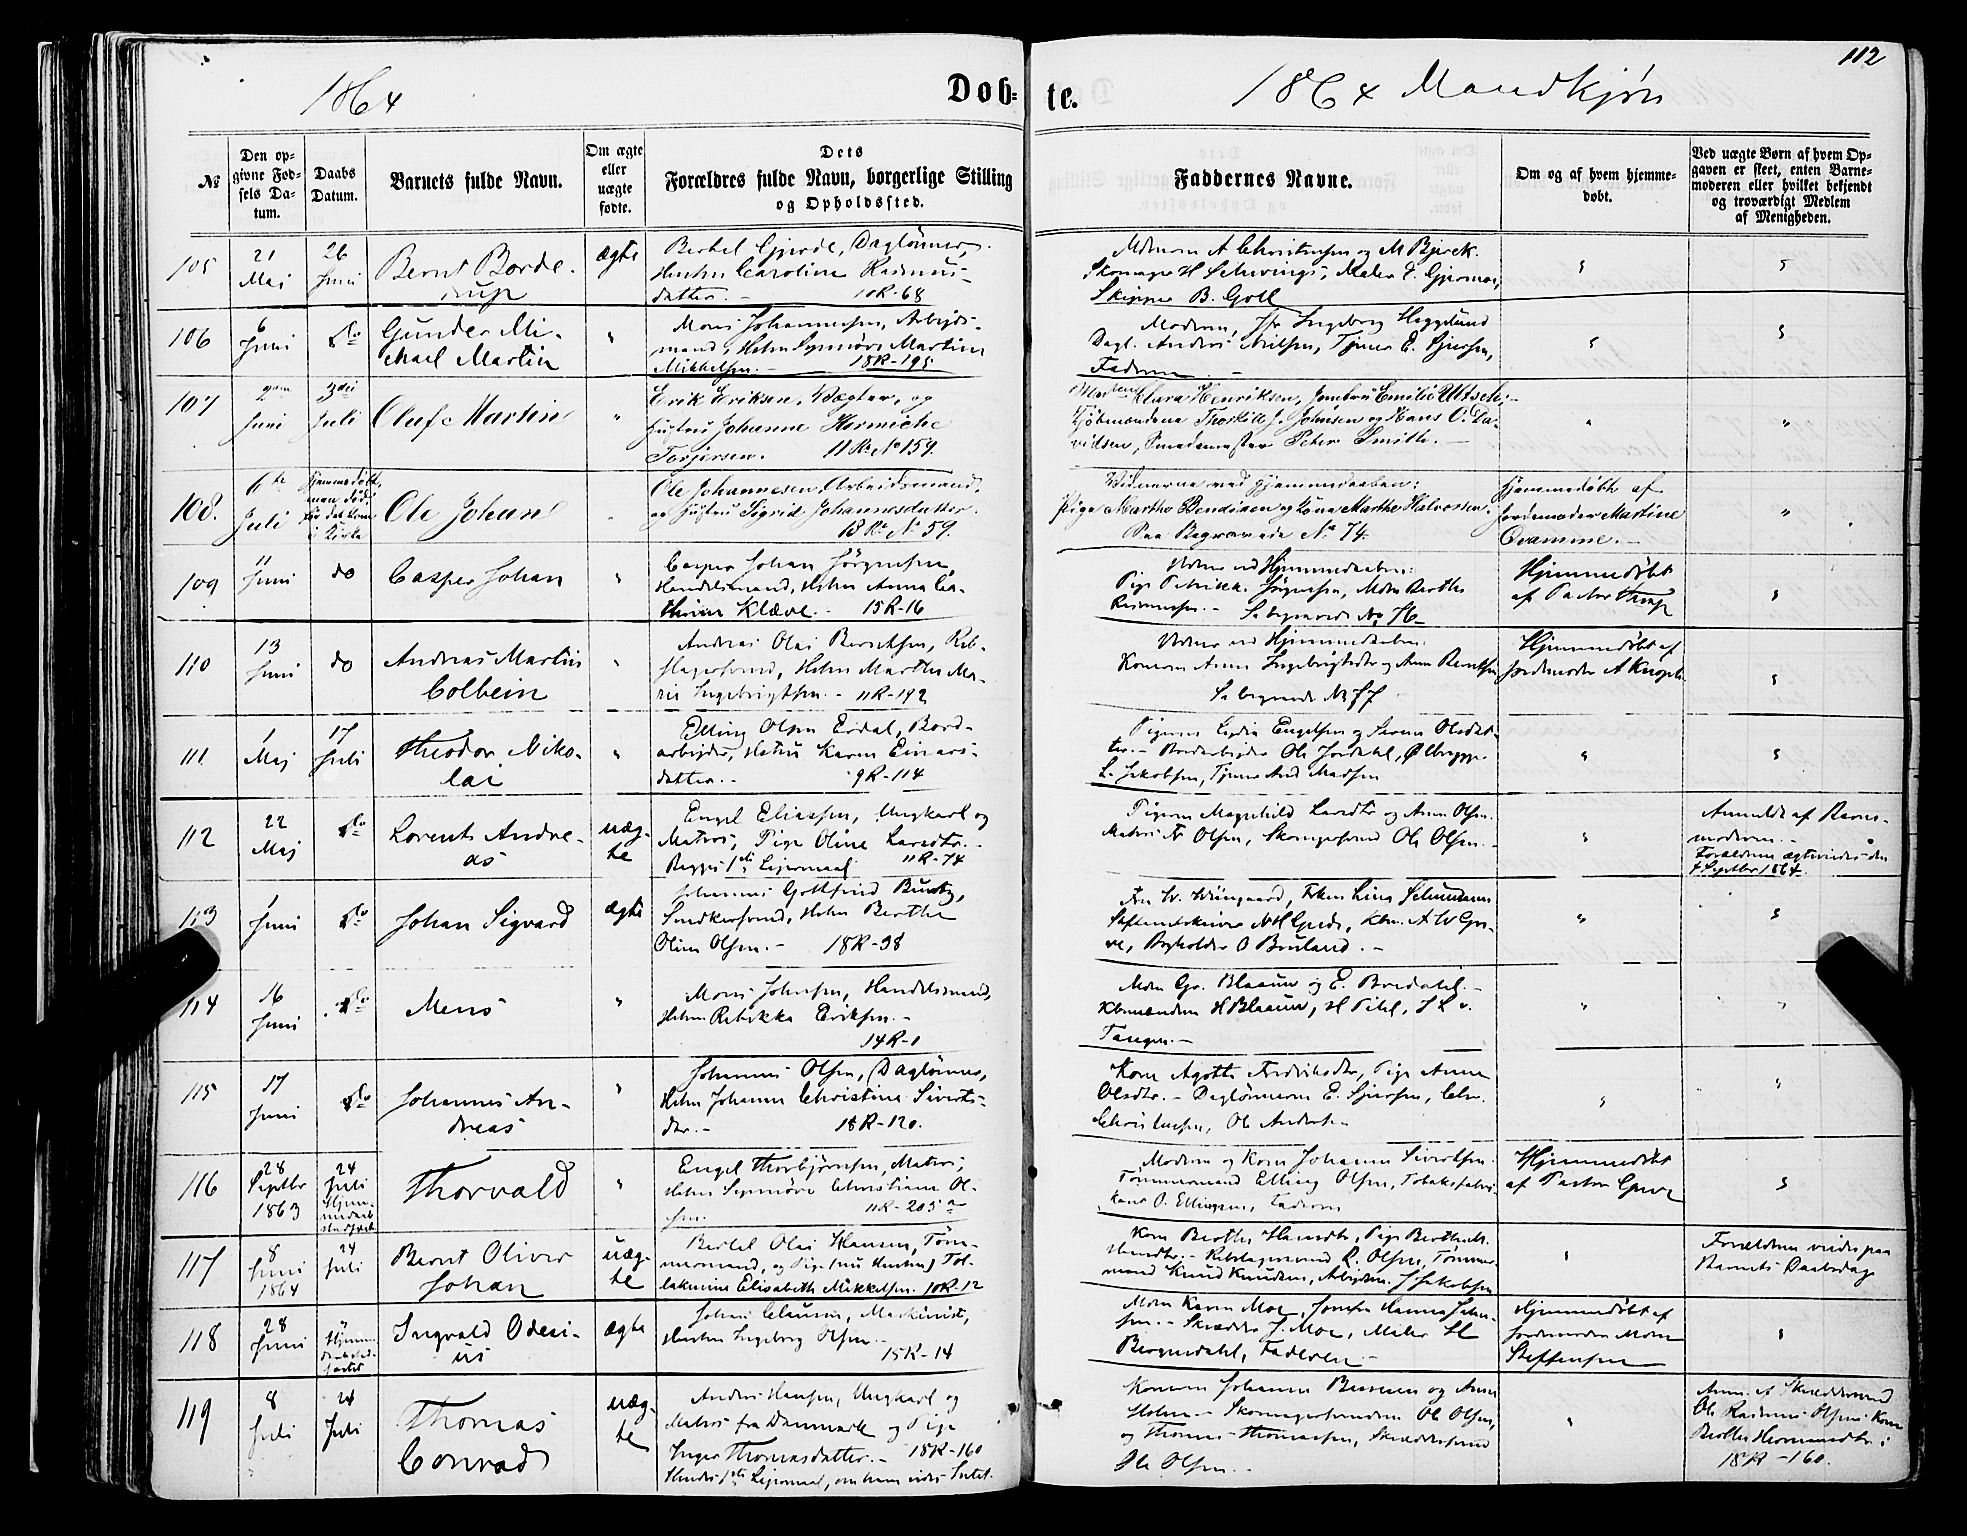 112
1864
Døb-
te.
1864 Mandkjøn
№
Den op-
givne Fød-
sels Da-
tum.
Daabs
Datum.
Barnets fulde Navn.
Om ægte
eller
uægte
fødte.
Dets
Forældres fulde Navn, borgerlige Stilling
og Opholdssted.
Faddernes Navne.
Om og af hvem hjemme-
døbt.
Ved uægte Børn af hvem Op-
gaven er skeet, enten Barne-
moderen eller hvilket bekjendt
og troværdigt Medlem
af Menigheden.
105
21
Maj
26
Juni
Bernt Borde-
rup
ægte
Bertel Gjerde, Daglønner,
Hustru Caroline Rasmus-
datter. - 10R-68
Skipper B. Goll
106
6
Juni
do
Gunder Mi-
chael Martin
"
Mons Johannessen, Arbeids-
mand, Hstru Synnøve Martine
Mikkelsen. - 18R-195
Moderen, Jfr Ingeborg Hegglund
Dagl. Anders Nilsen, Tjener E. Sjursen,
Faderen. -
107
Juni
3die
Juli
Oluf Martin
"
Erik Eriksen, Vægter, og
Hustru Johanne Hermiche
Torjersen. 11 R. No 159.
Clara Henriksen, Jomfru Emilie Utsch;
Kjøbmændene Thorkild J. Johnsen og Hans O. Da-
vidsen, Smedemester Peter Smith. -
108.
6te
Juli
Hjemmedøbt,
men døde
før det kom
i Kirke
Ole Johan
Ole Johannesen, Arbeidsmand,
og Hustru Sigrid Johannesdatter.
18 R. No 59.
Vidnerne ved Hjemmedaaben:
Pige Marthe Bendixen og Kone Marthe Halvorsen.
Paa Begravede No 74.
Hjemmedøbt af
Jordemoder Martine
Qvamme. -
"
109
11
Juni
do
Casper Johan
"
Casper Johan Jørgensen,
Handelsmand, Hstru Anna Ca-
thrine Klæve. - 15R-16
Vidner ved Hjemmedaaben:
Se begravede No 76
Hjemmedøbt
af Pastor
110
13
Juni
do
Andreas Martin
Colbein
"
Andreas Olai Berntsen, Reb-
slagersvend, Hstru Marthe Ma-
rie Ingebrigtsen. - 11R-192
Vidner ved Hjemmedaaben:
Konerne Anna Ingebrigtsdtr og Anna Berntsen
Se begravede No 77
Hjemmedøbt af
Jordemoder A Knoph
111
1
Maj
17
Juli
Theodor Niko-
lai
"
Elling Olsen Eidal, Bord-
arbejder, Hstru Karen Einars-
datter. - 9R-114
Pigerne Lydia Engelsen og Severine Olsdat-
ter. - Bordarbejder Ole Jordahl, Ølbrygger
L. Jakobsen, Tjener And Madsen
"
112
22
Maj
do
Lorents Andre-
as
uæg-
te
Engel Eliassen, Ungkarl og
Matros, Pige Oline Larsdtr. -
Begges 1ste Lejermaal 11R-74
Pigerne Magnhild Larsdtr og Anna Olsen.
Matros Fr Olsen, Skomagersvend Ole Olsen. -
"
Anmeldt af Barne-
moderen. -
Forældrene ægteviedes den
4 Septbr 1864.
113
1
Juni
do
Johan Sigvard
ægte
Johannes Gottfried Buntz,
Snedkersvend, Hstru Berthe
Oline Olsen. - 18R-38
Fru W. Wiingaard, Frøken Lina Schumann
"
114
16
Juni
do
Mens
"
Mons Johnsen, Handelsmand,
Hstru Rebekka Eriksen. -
14R-1
Mdm Gr. Blaauw og E. Bredahl. -
Kbmændene H Blaauw, H Pihl, J L v.
Tangen. -
"
115
17
Juni
do
Johannes An-
dreas
"
Johannes Olsen, Daglønner,
Hstru Johanne Christine Siverts-
dtr. - 18R-120.
Kone Agathe Fredriksdtr, Pige Anna
Olsdtr. - Daglønnerne E. Sjursen, Chr.
Christensen, Ole Anders. -
"
116
28
Septbr
1863
24
Juli
Thorvald
"
Engel Thorbjørnsen, Matros,
Hstru Synnøve Christiane Ol-
sen. 11R-205a
Moderen og Kone Johanne Sivertsen
Tømmermand Elling Olsen, Tobaksfabri-
kant O. Ellingsen, Faderen
Hjemmedøbt
af Pastor Greve
117
8
Juni
1864
24
Juli
Bernt Oliver
Johan
uæg-
te
Bertel Olai Hansen, Tøm-
mermand, og Pige (nu Hustru) Tol-
lakmine Elisabeth Mikkelsen. 10R-12
Kone Berthe Hansdtr, Pige Berthe M.
Hansdtr. - Rebslagersvend R. Olsen, Tømmer-
mand Knud Knudsen, Arbejdsm. J Jakobsen
Forældrene viedes paa
Barnets Daabsdag
118
28
Juni
Ingvald Odeni-
us
ægte
Johan Clausen, Maskinist,
Hustru Ingeborg Olsen. -
15R-14
Mdm Karen Moe, Jomfru Hanna John-
sen. - Skrædder J. Moe, Maler H
Bergendahl, Faderen -
Hjemmedøbt af
Jordemoder Mdm
Steffensen
119
8
Juli
24
Juli
Thomas
Conrad
uæg-
te
Anders Hansen, Ungkarl og
Matros fra Danmark og Pige
Inger Thomasdatter. - 18R-160
Hendes 1ste Lejermaal, om ham vides Intet.
Konerne Johanne Bessesen og Anna
Holm - Skomagersvendene Ole Olsen,
og Thomas Thomassen, Skræddersvend
Ole Olsen. -
Anm. af Skræddersvend
Ole Rasmus Olsens Kone
Berthe Hermandsdtr i
18R-160.